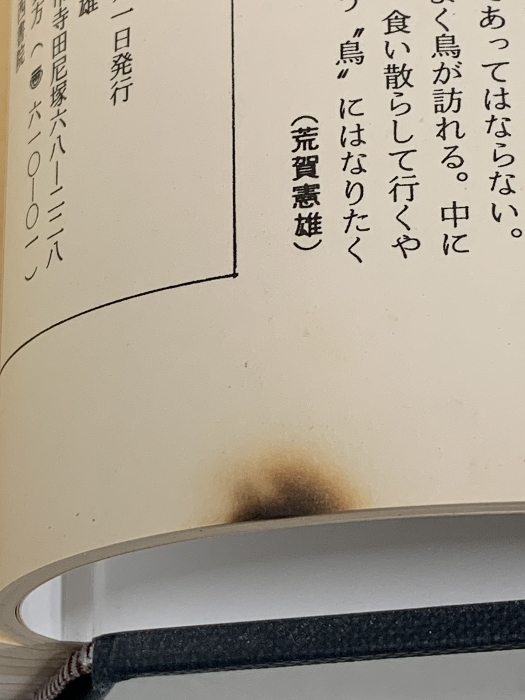 あってはならない。
く鳥が訪れる。中に
食い散らして行くや
う〝鳥〟にはなりたく
（荒賀憲雄）
一日発行
雄
寺田尼塚六八―二二八
方（〒六一〇―〇一）